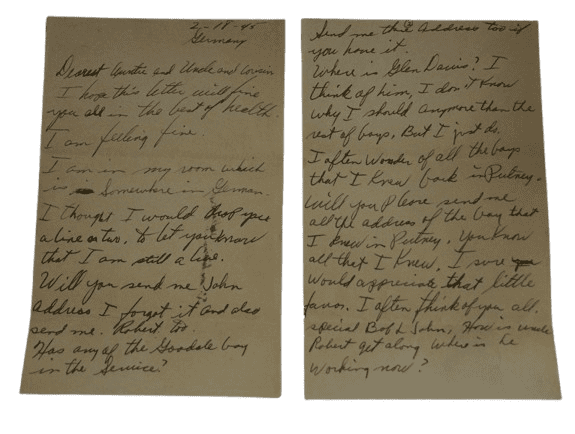 2-18-45
Germany
Dearest Auntie and Uncle and Cousin
I hope this letter will fine
you all in the best of health.
I am feeling fine.
I am in my room which
is Somewhere in German.
I thought I would drop you
a line or two, to let you know
that I am still a live.
Will you send me John
address I forgot it and also
send me. Robert too.
Has any of the Goodale boy
in the Service?
Send me their Address too if
you have it.
Where is Glen Davis? I
think of him, I don't know
why I should anymore than the
rest of boys. But I just do.
I often Wonder of all the boys
that I knew back in Putney.
Will you please send me
all the address of the boy that
I knew in Putney. You know
all that I knew. I sure
would appreciate that little
favor. I often think of you all.
special Bob & John, How is uncle
Robert get along where is he
working now?